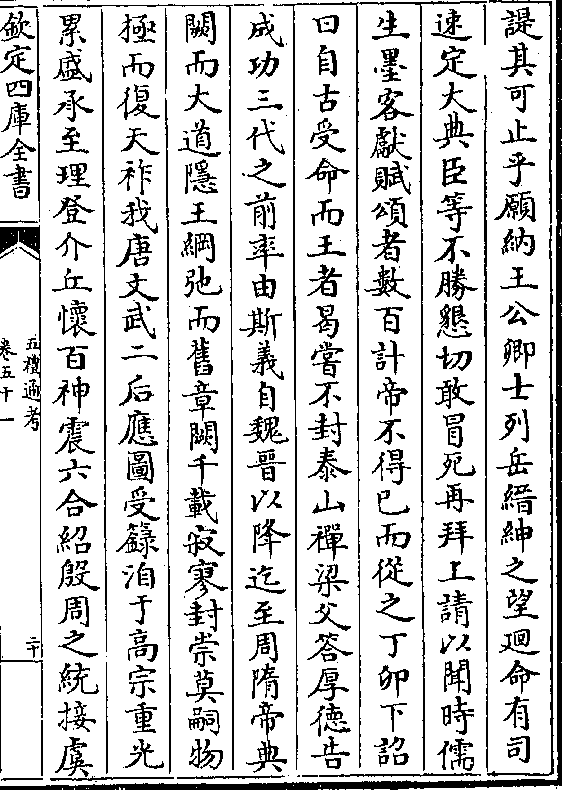 諟其可止乎願納王公卿士列岳縉紳之望迴命有司
速定大典臣等不勝懇切敢冒死再拜上請以聞時儒
生墨客獻賦頌者數百計帝不得已而從之丁卯下詔
曰自古受命而王者曷嘗不封泰山禪梁父答厚德告
成功三代之前率由斯義自魏晉以降迄至周隋帝典
闕而大道隱王綱弛而舊章闕千載寂寥封崇莫嗣物
極而復天祚我唐文武二后應圖受籙洎于高宗重光
累盛承至理登介丘懷百神震六合紹殷周之統接虞
欽定四庫全書
五禮通考
卷五十一
二十